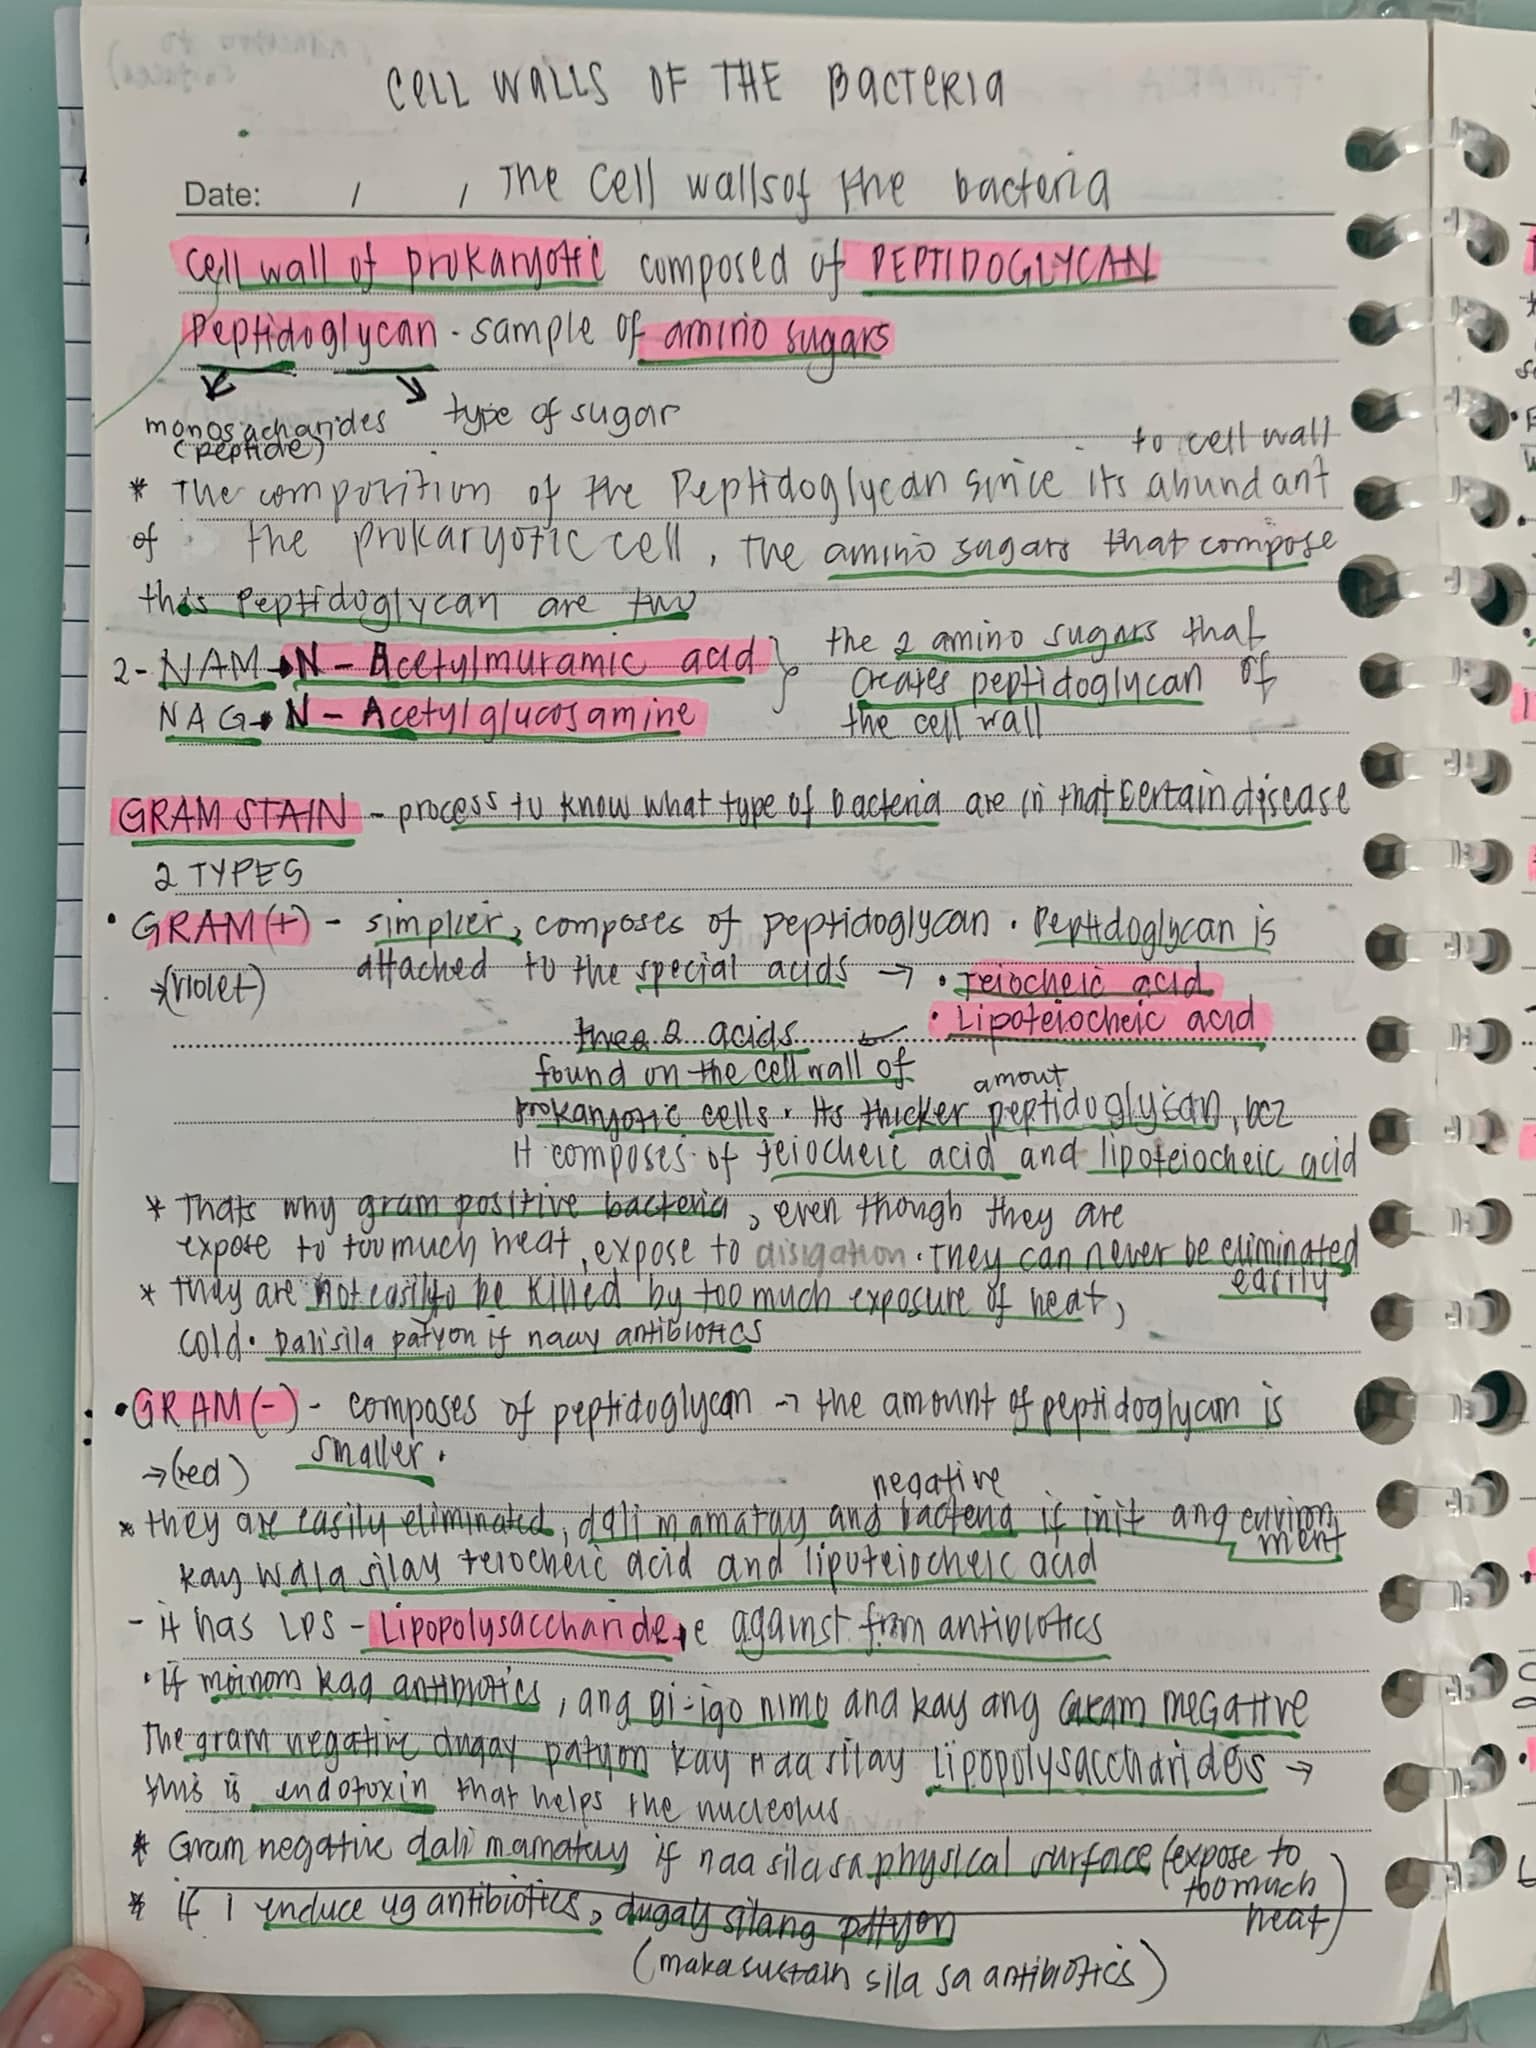 CELL WALLS OF THE BACTERIA
Date: / / The cell walls of the bacteria
Cell wall of prokaryotic composed of PEPTIDOGLYCAN
Peptidoglycan - sample of amino sugars
monosacharides type of sugar
(peptide)
to cell wall
* The composition of the Peptidoglycan since its abundant
of the prokaryotic cell, the amino sugars that compose
this Peptidoglycan are two
2- NAM → N - Acetylmuramic acid } the 2 amino sugars that
creates peptidoglycan of
NAG → N - Acetylglucosamine
the cell wall
GRAM STAIN - process to know what type of bacteria are in that certain disease
2 TYPES
• GRAM (+) - simplier, composes of peptidoglycan. Peptidoglycan is
→ (violet) attached to the special acids → • Teiocheic acid
• Lipoteiocheic acid
2 acids ←
found on the cell wall of
amout
prokaryotic cells. Its thicker peptidoglycan, bcz
It composes of teiocheic acid and lipoteiocheic acid
* Thats why gram positive bacteria, even though they are
expose to too much heat, expose to disigation. They can never be eliminated
easily
* They are not easily to be killed by too much exposure of heat,
cold. Dali sila patyon if naay antibiotics
• GRAM (-) - composes of peptidoglycan → the amount of peptidoglycan is
→ (red) smaller.
negative
* they are easily eliminated, dali mamatay and bacteria if init ang environ
ment
kay wala silay teiocheic acid and lipoteiocheic acid
- it has LPS - Lipopolysaccharide against from antibiotics
• if moinom kag antibiotics, ang gi-igo nimo ana kay ang Gram Negative
The gram negative dugay patyon kay naa silay Lipopolysaccharides →
this is endotoxin that helps the nucleolus
* Gram negative dali mamatay if naa sila sa physical surface (expose to
too much
heat)
* if I enduce ug antibiotics, dugay silang patyon
(makasustain sila sa antibiotics)